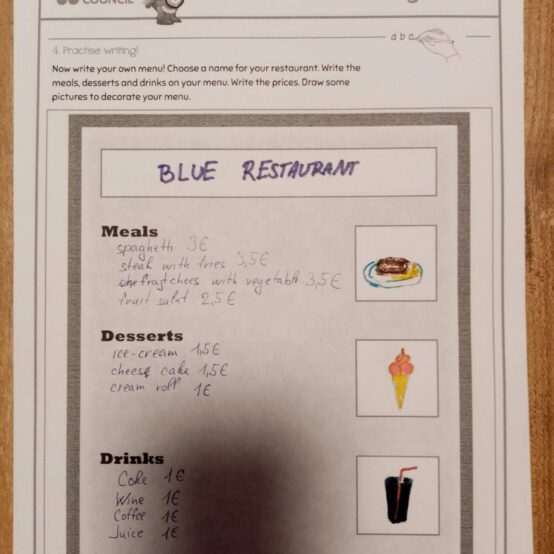 COUNCIL
4. Practise writing!
abc
Now write your own menu! Choose a name for your restaurant. Write the
meals, desserts and drinks on your menu. Write the prices. Draw some
pictures to decorate your menu.
BLUE RESTAURANT
Meals
spaghetti 3€
steak with fries 3,5€
chees with vegetable 3,5€
fruit salat 2,5€
Desserts
ice-cream 1,5€
cheese cake 1,5€
cream roll 1€
Drinks
Coke 1€
Wine 1€
Coffee 1€
Juice 1€